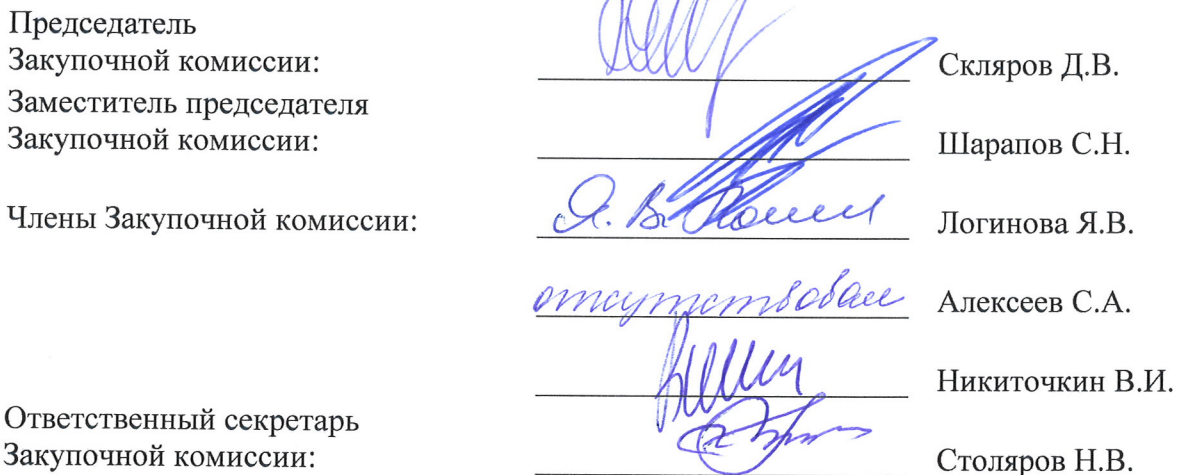 Председатель
Закупочной комиссии: Скляров Д.В.
Заместитель председателя
Закупочной комиссии: Шарапов С.Н.
Члены Закупочной комиссии: Я.В. Логинова Я.В.
отсутствовал Алексеев С.А.
Никиточкин В.И.
Ответственный секретарь
Закупочной комиссии: Столяров Н.В.